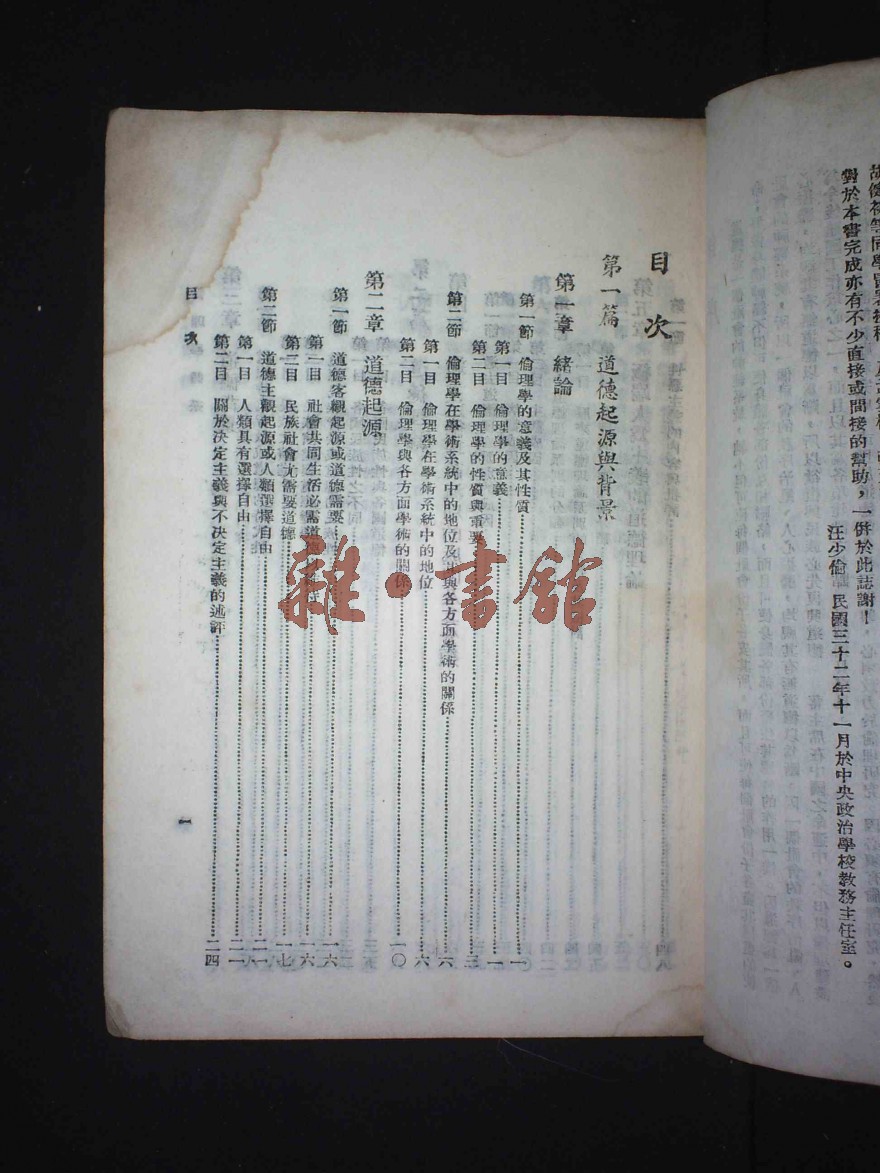 對於本書完成亦有不少直接或間接的幫助，一併於此誌謝！
汪少倫 民國三十二年十一月於中央政治學校教務主任室。
目次
第一篇 道德起源與背景
第一章 緒論
第一節 倫理學的意義及其性質……一
第一目 倫理學的意義……一
第二目 倫理學的性質與重要……三
第二節 倫理學在學術系統中的地位及其與各方面學術的關係……六
第一目 倫理學在學術系統中的地位……六
第二目 倫理學與各方面學術的關係……一〇
第二章 道德起源
第一節 道德客觀起源或道德需要……一六
第一目 社會共同生活必需道德……一六
第二目 民族社會尤需要道德……一七
第二節 道德主觀起源或人類選擇自由……二一
第一目 人類具有選擇自由……二一
第二目 關於決定主義與不決定主義的述評……二四
目次
1
雜·書館